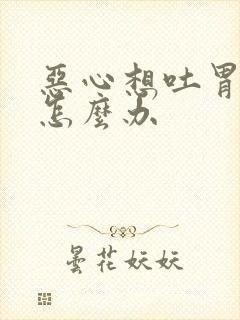 惡心想吐胃
怎麼办
曇花妖妖